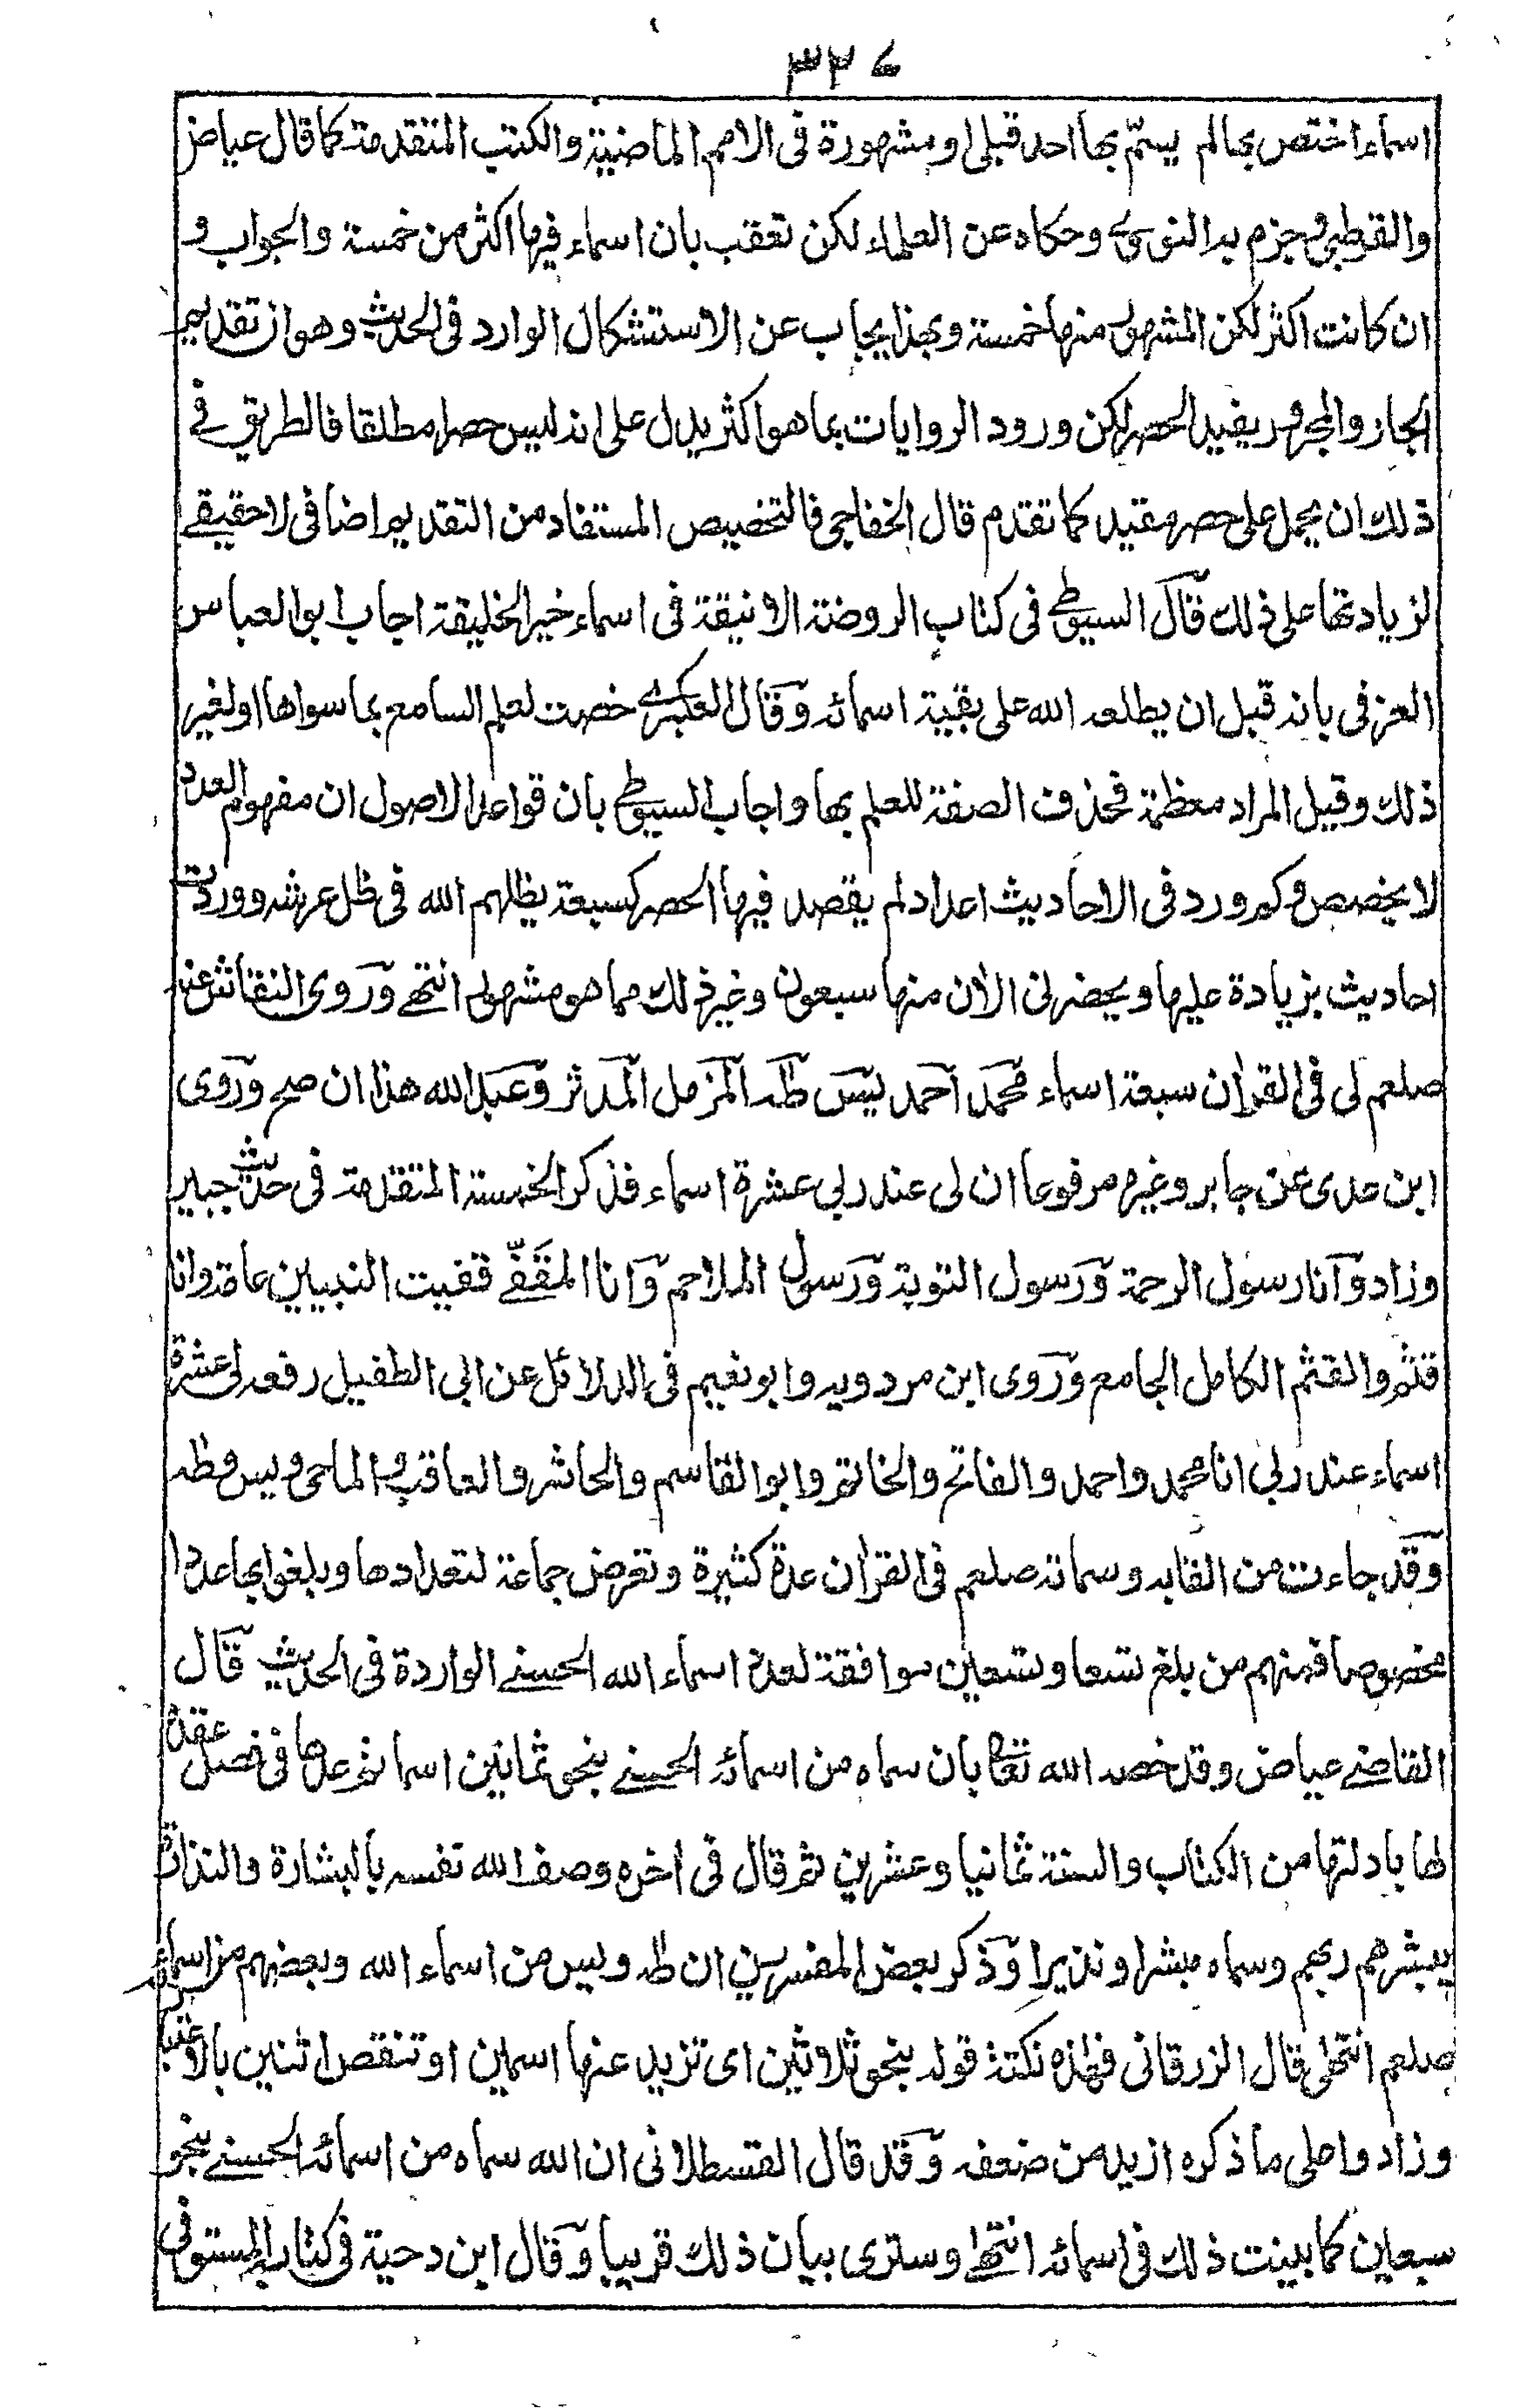 ٣٢٧
اسماء اختص بها لم يسمّ بها احد قبلى او مشهورة فى الامم الماضية والكتب المتقدمة كما قال عياض
والقرطبى وجزم به النووى وحكاه عن العلماء لكن تعقب بان اسماء فيها اكثر من خمسة والجواب و
ان كانت اكثر لكن المشهور منها خمسة وبهذا يجاب عن الاستشكال الوارد فى الحديث وهو ان تقديم
الجار والمجرور يفيد الحصر لكن ورود الروايات بما هو اكثر يدل على انه ليس حصرا مطلقا فالطريق فى
ذلك ان يحمل على حصر مقيد كما تقدم قال الخفاجى فالتخصيص المستفاد من التقديم اضافى لا حقيقے
لزيادتها على ذلك قال السيوطى فى كتاب الروضة الانيقة فى اسماء خير الخليقة اجاب ابو العباس
العزفى بانه قبل ان يطلعه الله على بقية اسمائه وقال العسكرى خصت لعلم السامع بما سواها او لغير
ذلك وقيل المراد معظمة فحذفت الصفة للعلم بها واجاب السيوطى بان قواعد الاصول ان مفهوم العدد
لا يخصص وكم ورد فى الاحاديث اعداد لم يقصد فيها الحصر كسبعة يظلهم الله فى ظل عرشه ووردت
احاديث بزيادة عليها ويحضرنى الان منها سبعون وغير ذلك مما هو مشهور انتهے وروى النقاش عنه
صلعم لى فى القرآن سبعة اسماء محمد احمد يٰس طٰه المزمل المدثر وعبد الله هذا ان صح وروى
ابن عدى عن جابر وغيره مرفوعا ان لى عند ربى عشرة اسماء فذكر الخمسة المتقدمة فى حديث جبير
وزاد وانا رسول الرحمة ورسول التوبة ورسول الملاحم وانا المقَفّے قفيت النبيين عامة وانا
قثم والقثم الكامل الجامع وروى ابن مردويه وابو نعيم فى الدلائل عن ابى الطفيل رفعه لى عشرة
اسماء عند ربى انا محمد واحمد والفاتح والخاتم وابو القاسم والحاشر والعاقب والماحى ويس وطه
وقد جاءت من القابه وسماته صلعم فى القرآن عدة كثيرة وتعرض جماعة لتعدادها وبلغوا بها عددا
مخصوصا فمنهم من بلغ تسعا وتسعين موافقة لعدد اسماء الله الحسنے الواردة فى الحديث قال
القاضے عياض وقد خصه الله تعالى بان سماه من اسمائه الحسنے بنحو ثمانين اسما ثم عدها فى فصل عقده
لها بادلتها من الكتاب والسنة ثمانيا وعشرين ثم قال فى اخره وصف الله نفسه بالبشارة والنذارة
يبشرهم ربهم وسماه مبشرا ونذيرا وذكر بعض المفسرين ان طه ويس من اسماء الله وبعضهم من اسمائه
صلعم انتهى قال الزرقانى فهذه نكتة قوله بنحو ثلاثين اى تزيد عنها اسمين او تنقص اثنين بالاعتبار
وزاد واعلى ما ذكره ازيد من ضعفه وقد قال القسطلانى ان الله سماه من اسمائه الحسنے بنحو
سبعين كما بينت ذلك فى اسمائه انتهے وسترى بيان ذلك قريبا وقال ابن دحية فى كتابه المستوفى